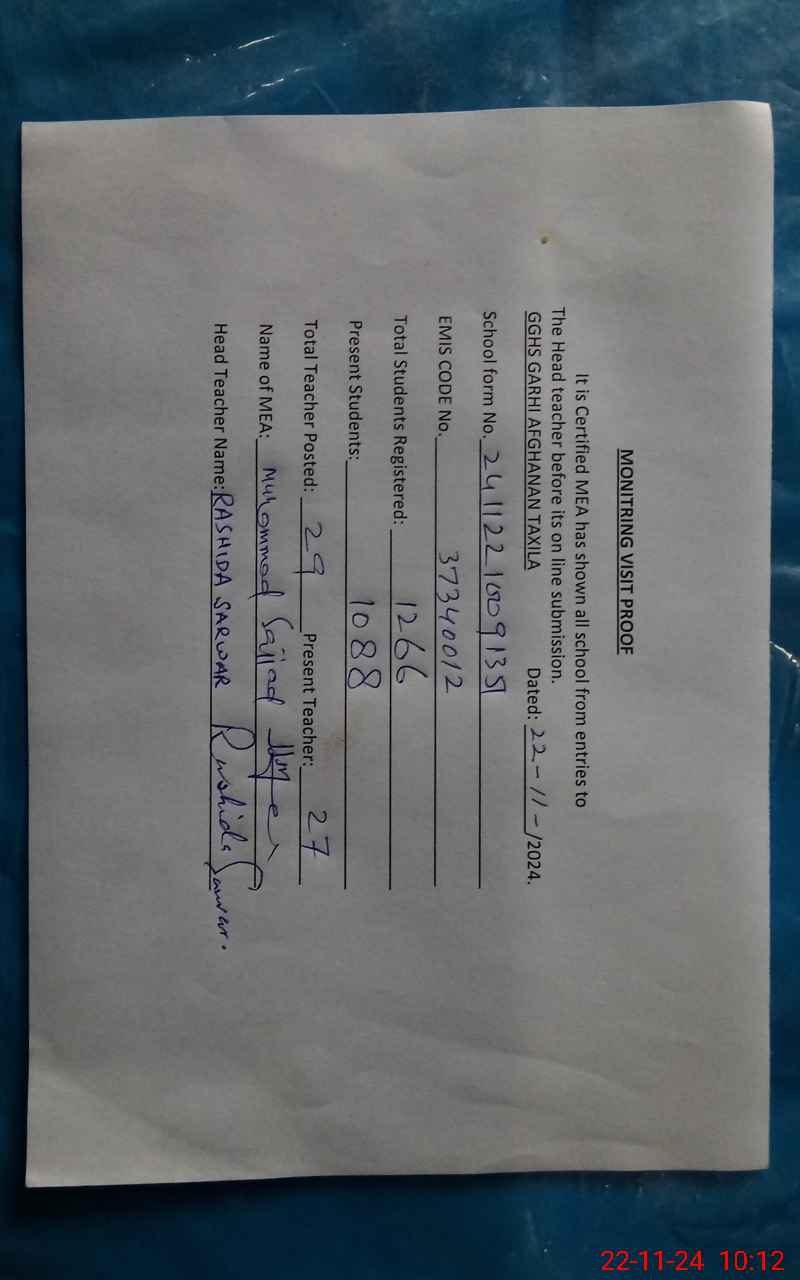 MONITRING VISIT PROOF
It is Certified MEA has shown all school from entries to
The Head teacher before its on line submission.
GGHS GARHI AFGHANAN TAXILA Dated: 22-11-/2024.
School form No. 2411221009135
EMIS CODE No. 37340012
Total Students Registered: 1266
Present Students: 1088
Total Teacher Posted: 29 Present Teacher: 27
Name of MEA: Muhammad Sajjad
Head Teacher Name: RASHIDA SARWAR Rashida Sarwar.
22-11-24 10:12